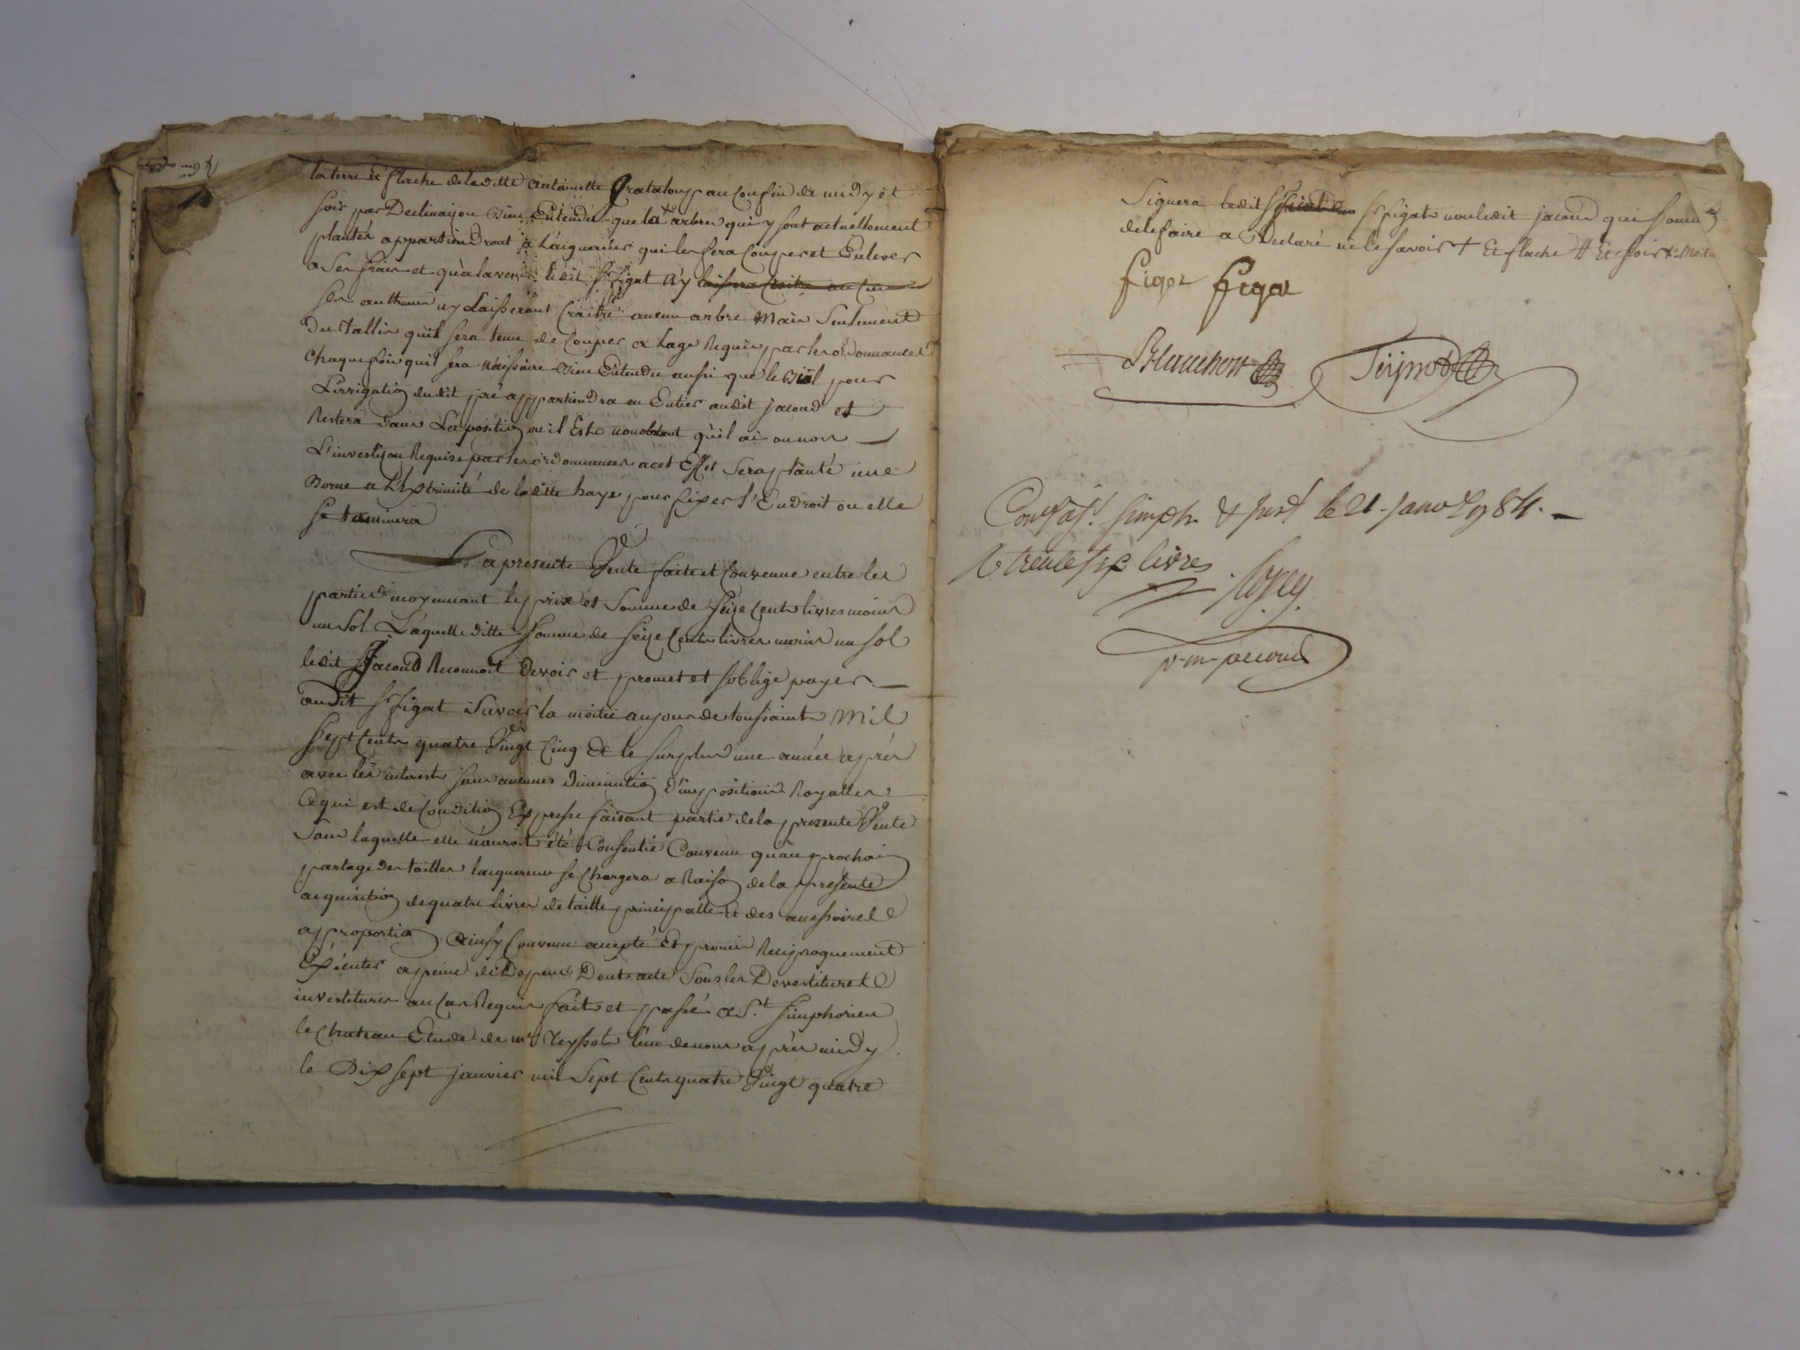 la terre et flache de laditte antoinette Grataloup au confin de midy et
soir par Declinaison Bien Entendu que les arbres qui y sont actuellement
plantés appartiendront à L'aiquereur qui les fera Couper et Enlever
a Ses frais et qu'a lavenir ledit Sr figat n'y laissera Croitre aucun
ses autheurs n'y Laisseront Craitre aucun arbre Mais Seulement
Du tallis quil sera tenu de Couper a Lage Requis par les ordonnances
chaque fois quil sera néssaire Bien Entendu aussi que le Biel pour
L'irrigation dudit pré appartiendra en Entier audit Jacoud et
Restera dans La position ou il Est nonobstant quil ai ou non
L'investison Requise par les ordonnances a cet Effet Sera planté une
Borne a L'Extrémité de laditte haye pour fixer l'Endroit ou elle
se terminera
La presente Vente faite et Convenue entre les
parties moyennant le prix et Somme de Seize Cents livres moins
un Sol Laquelle ditte Somme de Seize Cents livres moins un sol
ledit Jacoud Reconnoit Devoir et promet et soblige payer
audit Sr figat Savoir la moitié au jour de toussaints Mil
Sept Cents quatre Vingt Cinq Et le surplus une année après
avec les interests sans aucunes Diminution d'impositions Royalles
Ce qui est de Condition Expresse faisant partie de la presente Vente
Sans laquelle elle n'auroit été Consentie Convenu qu'au prochain
partage des tailles laiquereur se Chargera a Raison de la presente
aiquisition de quatre livres de taille principalle Et des accessoirel
a proportion Ainsy Convenu accepté Et promis Reciproquement
Exécuter a peine de Depens Dont acte Sous les Devestiture
investitures au Cas Requis fait et passé a St. Simphorien
le Chateau Etude de me Teyssot l'un de nous après midy
le Dix sept janvier mil Sept Cents quatre Vingt quatre
Signera ledit Sr figat non ledit jacoud qui Somm
de le faire a Declaré ne le Savoir + Et flache # Et soir
figat figat
Con. a St. Simph. le 21 Janv. 1784.
R trente six livres
p-m-jacoud